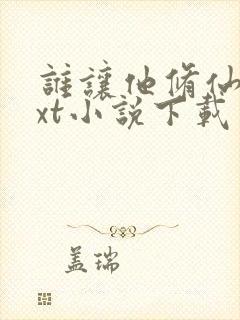 誰讓他脩仙
xt小說下載
盖瑞